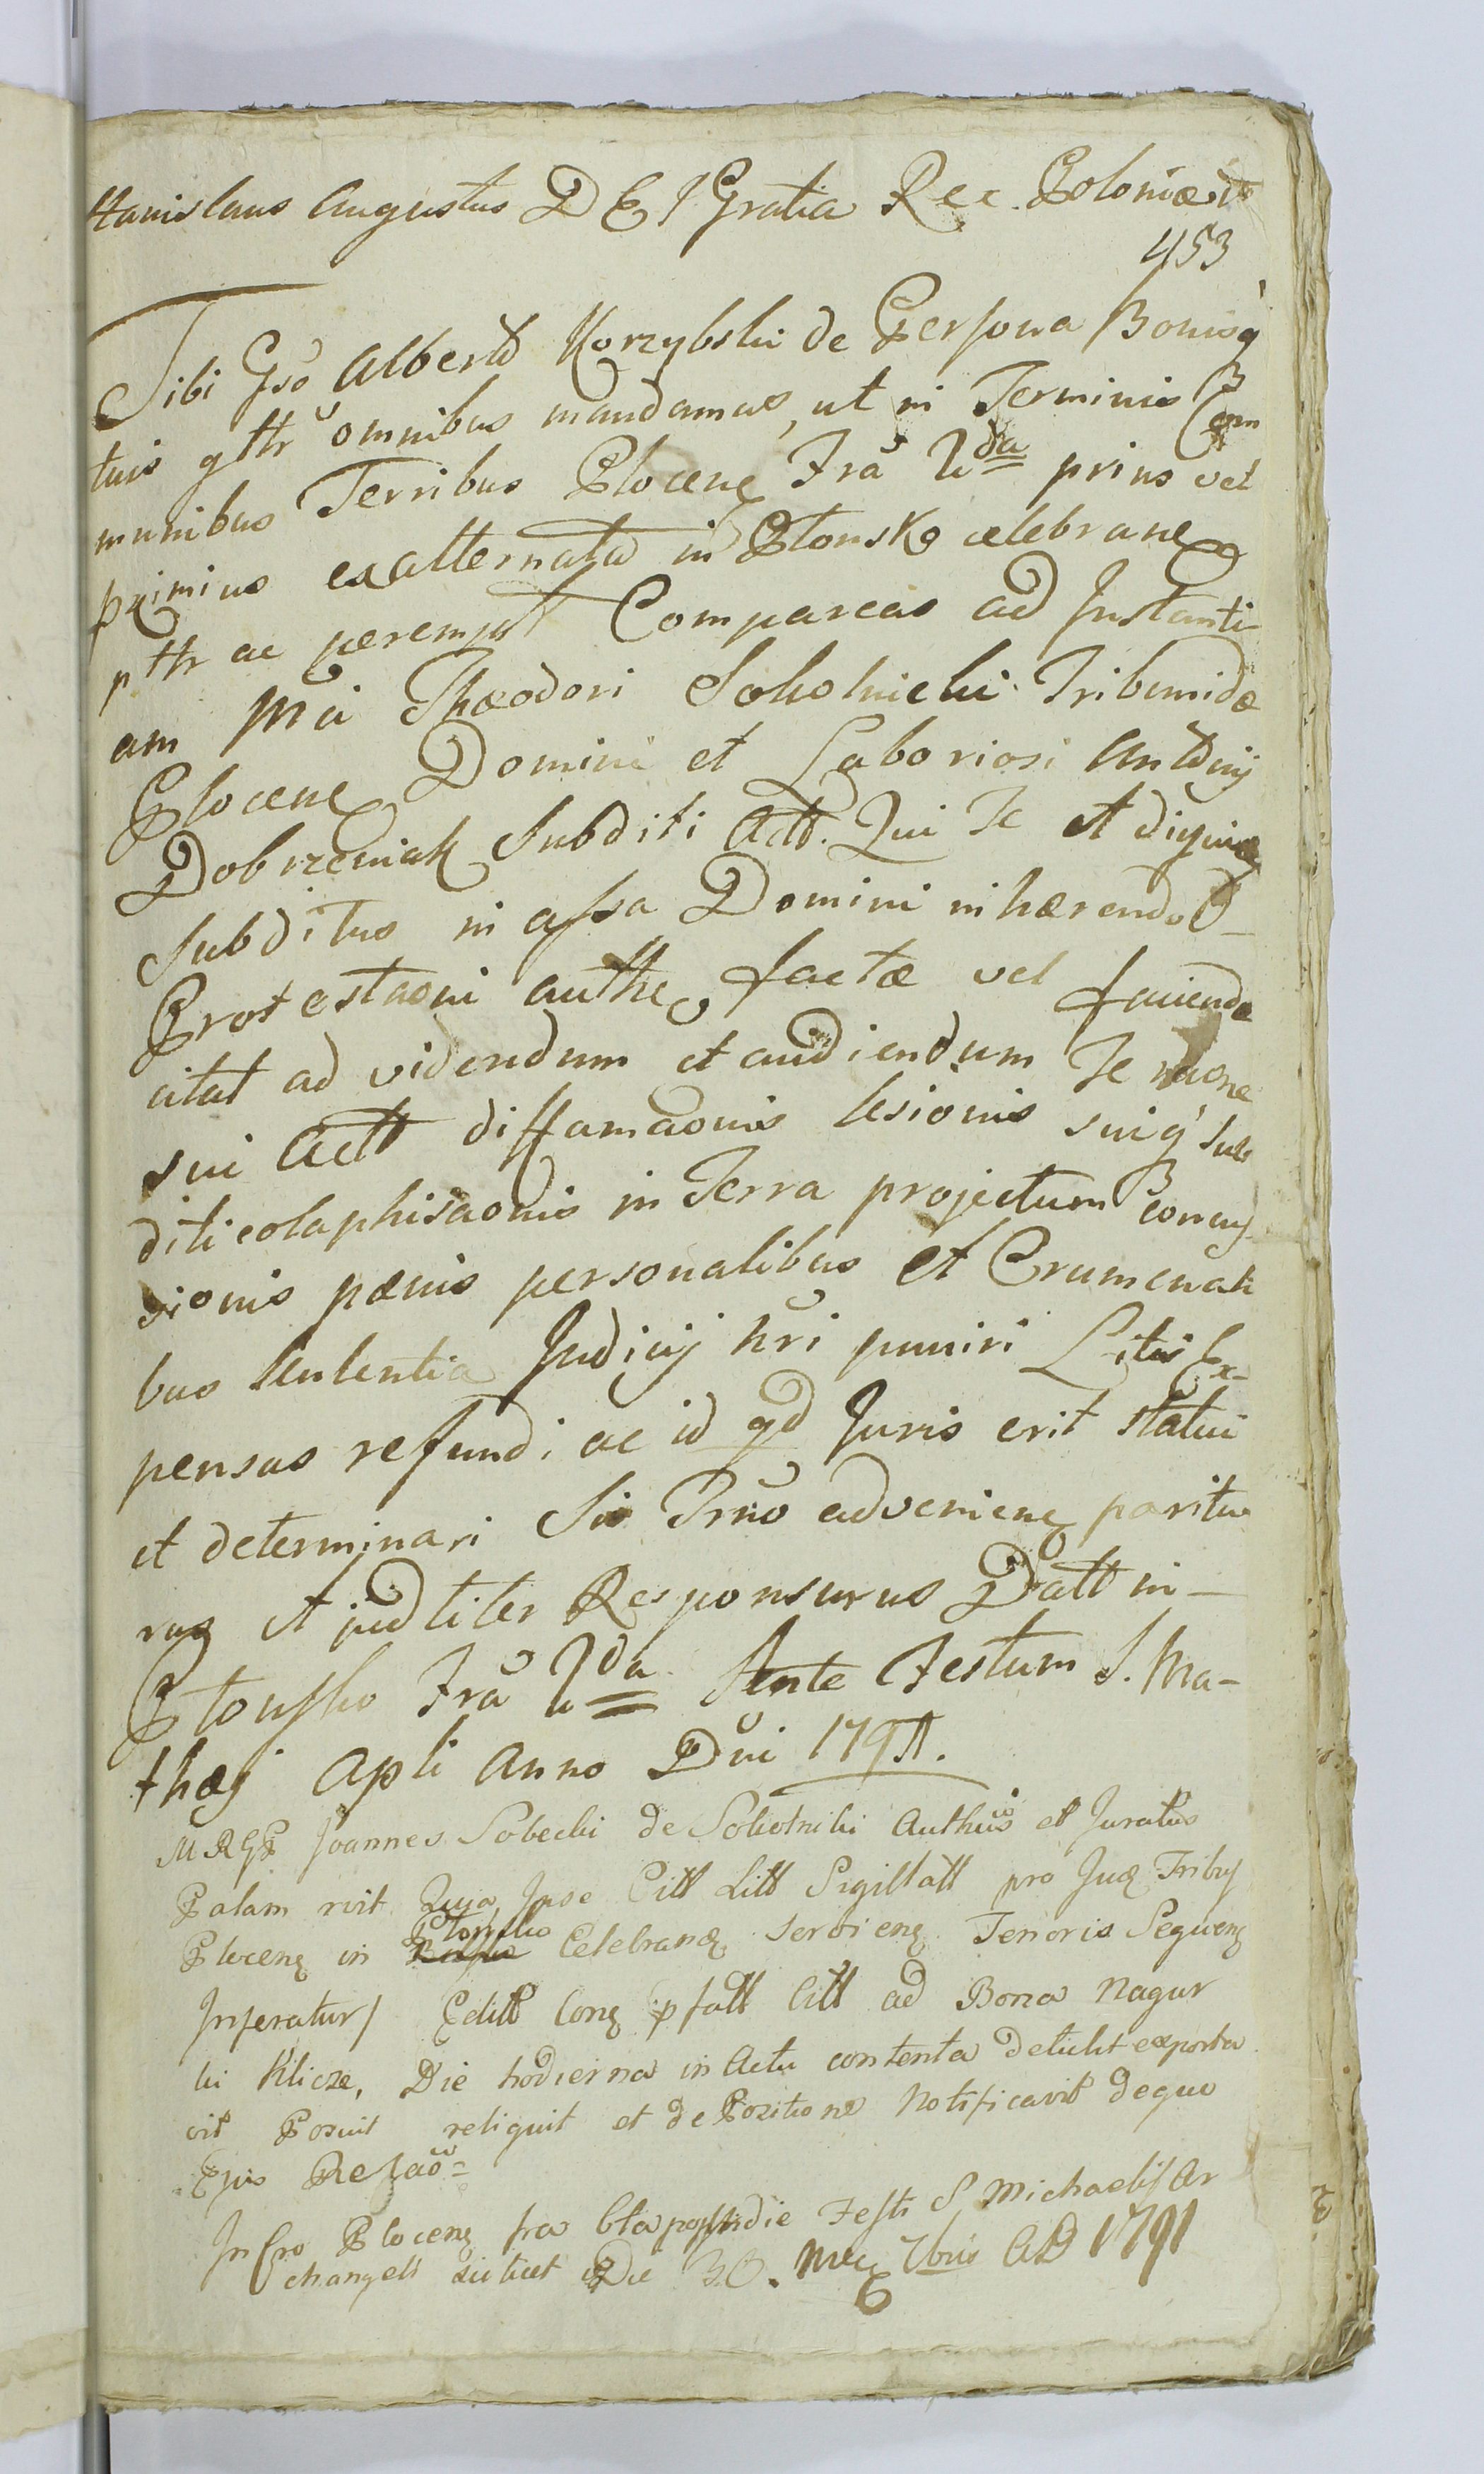 Stanislaus Augustus DEI Gratia Rex Poloniæ etc
453
Tibi Gso Alberto Korzybski de Persona Bonisq
tuis gttr omnibus mandamus, ut in Terminis Com
munibus Terribus Plocen Fra 2da prius vel
primius exalternata in Płonsko celebranen
pttr ac perempt Compareas ad Instanti
am Mci Thæodori Sokolnicki Tribunidæ
Plocen Domini et Laboriosi Antonij
Dobrzeniak Subditi Actt. Qui Te et dignius
Subditus in assa Domini inhærendo
Protestaoni authen factæ vel faciendæ
citat ad videndum et audiendum Te raone
sui Actt diffamaonis lesionis suiq sub
diti colaphisaonis in Terra projectum concus
sionis pænis personalibus et Crumenali
bus Sententia Judicij nri puniri Litis Ex-
pensas refundi ac id qd Juris erit statui
et determinari Sis Trno advenien paritu
rus et judtiter Responsurus Datt in-
Płonsko Fra 2da Ante Festum S. Ma-
thæj Apli Anno Dni 1791.
MRGP Joannes Sobecki de Sokolniki Authus et Juratus
Palam rvit Quia Ipse Citt Litt Sigillatt pro Jud Tribus
Plocen in Płonsko Celebrand servien Tenoris Sequen
Inseratur/ Editt Con pfatt Citt ad Bona Nagur
ki Klicze, Die hodierna in Actu contenta detulit exporta
vit Posuit reliquit et de Pozitione Notificavit dequo
Ejus Relao=
In Cro Plocen fra 6ta postridie Festi S Michaelis Ar
changeli scilicet Die 30. Mens 7bris AD 1791